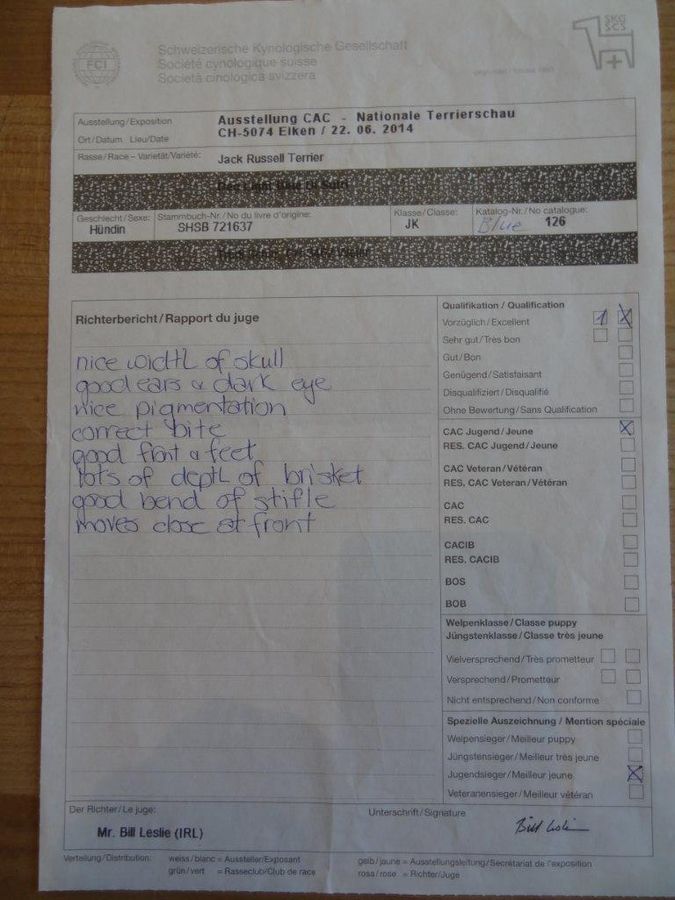 FCI
Schweizerische Kynologische Gesellschaft
Société cynologique suisse
Società cinologica svizzera
SKG
SCS
Ausstellung/Exposition
Ausstellung CAC - Nationale Terrierschau
Ort/Datum Lieu/Date
CH-5074 Eiken / 22. 06. 2014
Rasse/Race – Varietät/Variété: Jack Russell Terrier
Geschlecht/Sexe: Stammbuch-Nr./No du livre d'origine: Klasse/Classe: Katalog-Nr./No catalogue:
Hündin SHSB 721637 JK Blue 126
Richterbericht/Rapport du juge
nice width of skull
good ears & dark eye
nice pigmentation
correct bite
good front & feet
lots of depth of brisket
good bend of stifle
moves close at front
Qualifikation/Qualification
Vorzüglich/Excellent 1 X
Sehr gut/Très bon
Gut/Bon
Genügend/Satisfaisant
Disqualifiziert/Disqualifié
Ohne Bewertung/Sans Qualification
CAC Jugend/Jeune X
RES. CAC Jugend/Jeune
CAC Veteran/Vétéran
RES. CAC Veteran/Vétéran
CAC
RES. CAC
CACIB
RES. CACIB
BOS
BOB
Welpenklasse/Classe puppy
Jüngstenklasse/Classe très jeune
Vielversprechend/Très prometteur
Versprechend/Prometteur
Nicht entsprechend/Non conforme
Spezielle Auszeichnung / Mention spéciale
Welpensieger/Meilleur puppy
Jüngstensieger/Meilleur très jeune
Jugendsieger/Meilleur jeune X
Veteranensieger/Meilleur vétéran
Der Richter/Le juge: Unterschrift/Signature
Mr. Bill Leslie (IRL) Bill Leslie
Verteilung/Distribution: weiss/blanc = Aussteller/Exposant gelb/jaune = Ausstellungsleitung/Secrétariat de l'exposition
grün/vert = Rasseclub/Club de race rosa/rose = Richter/Juge